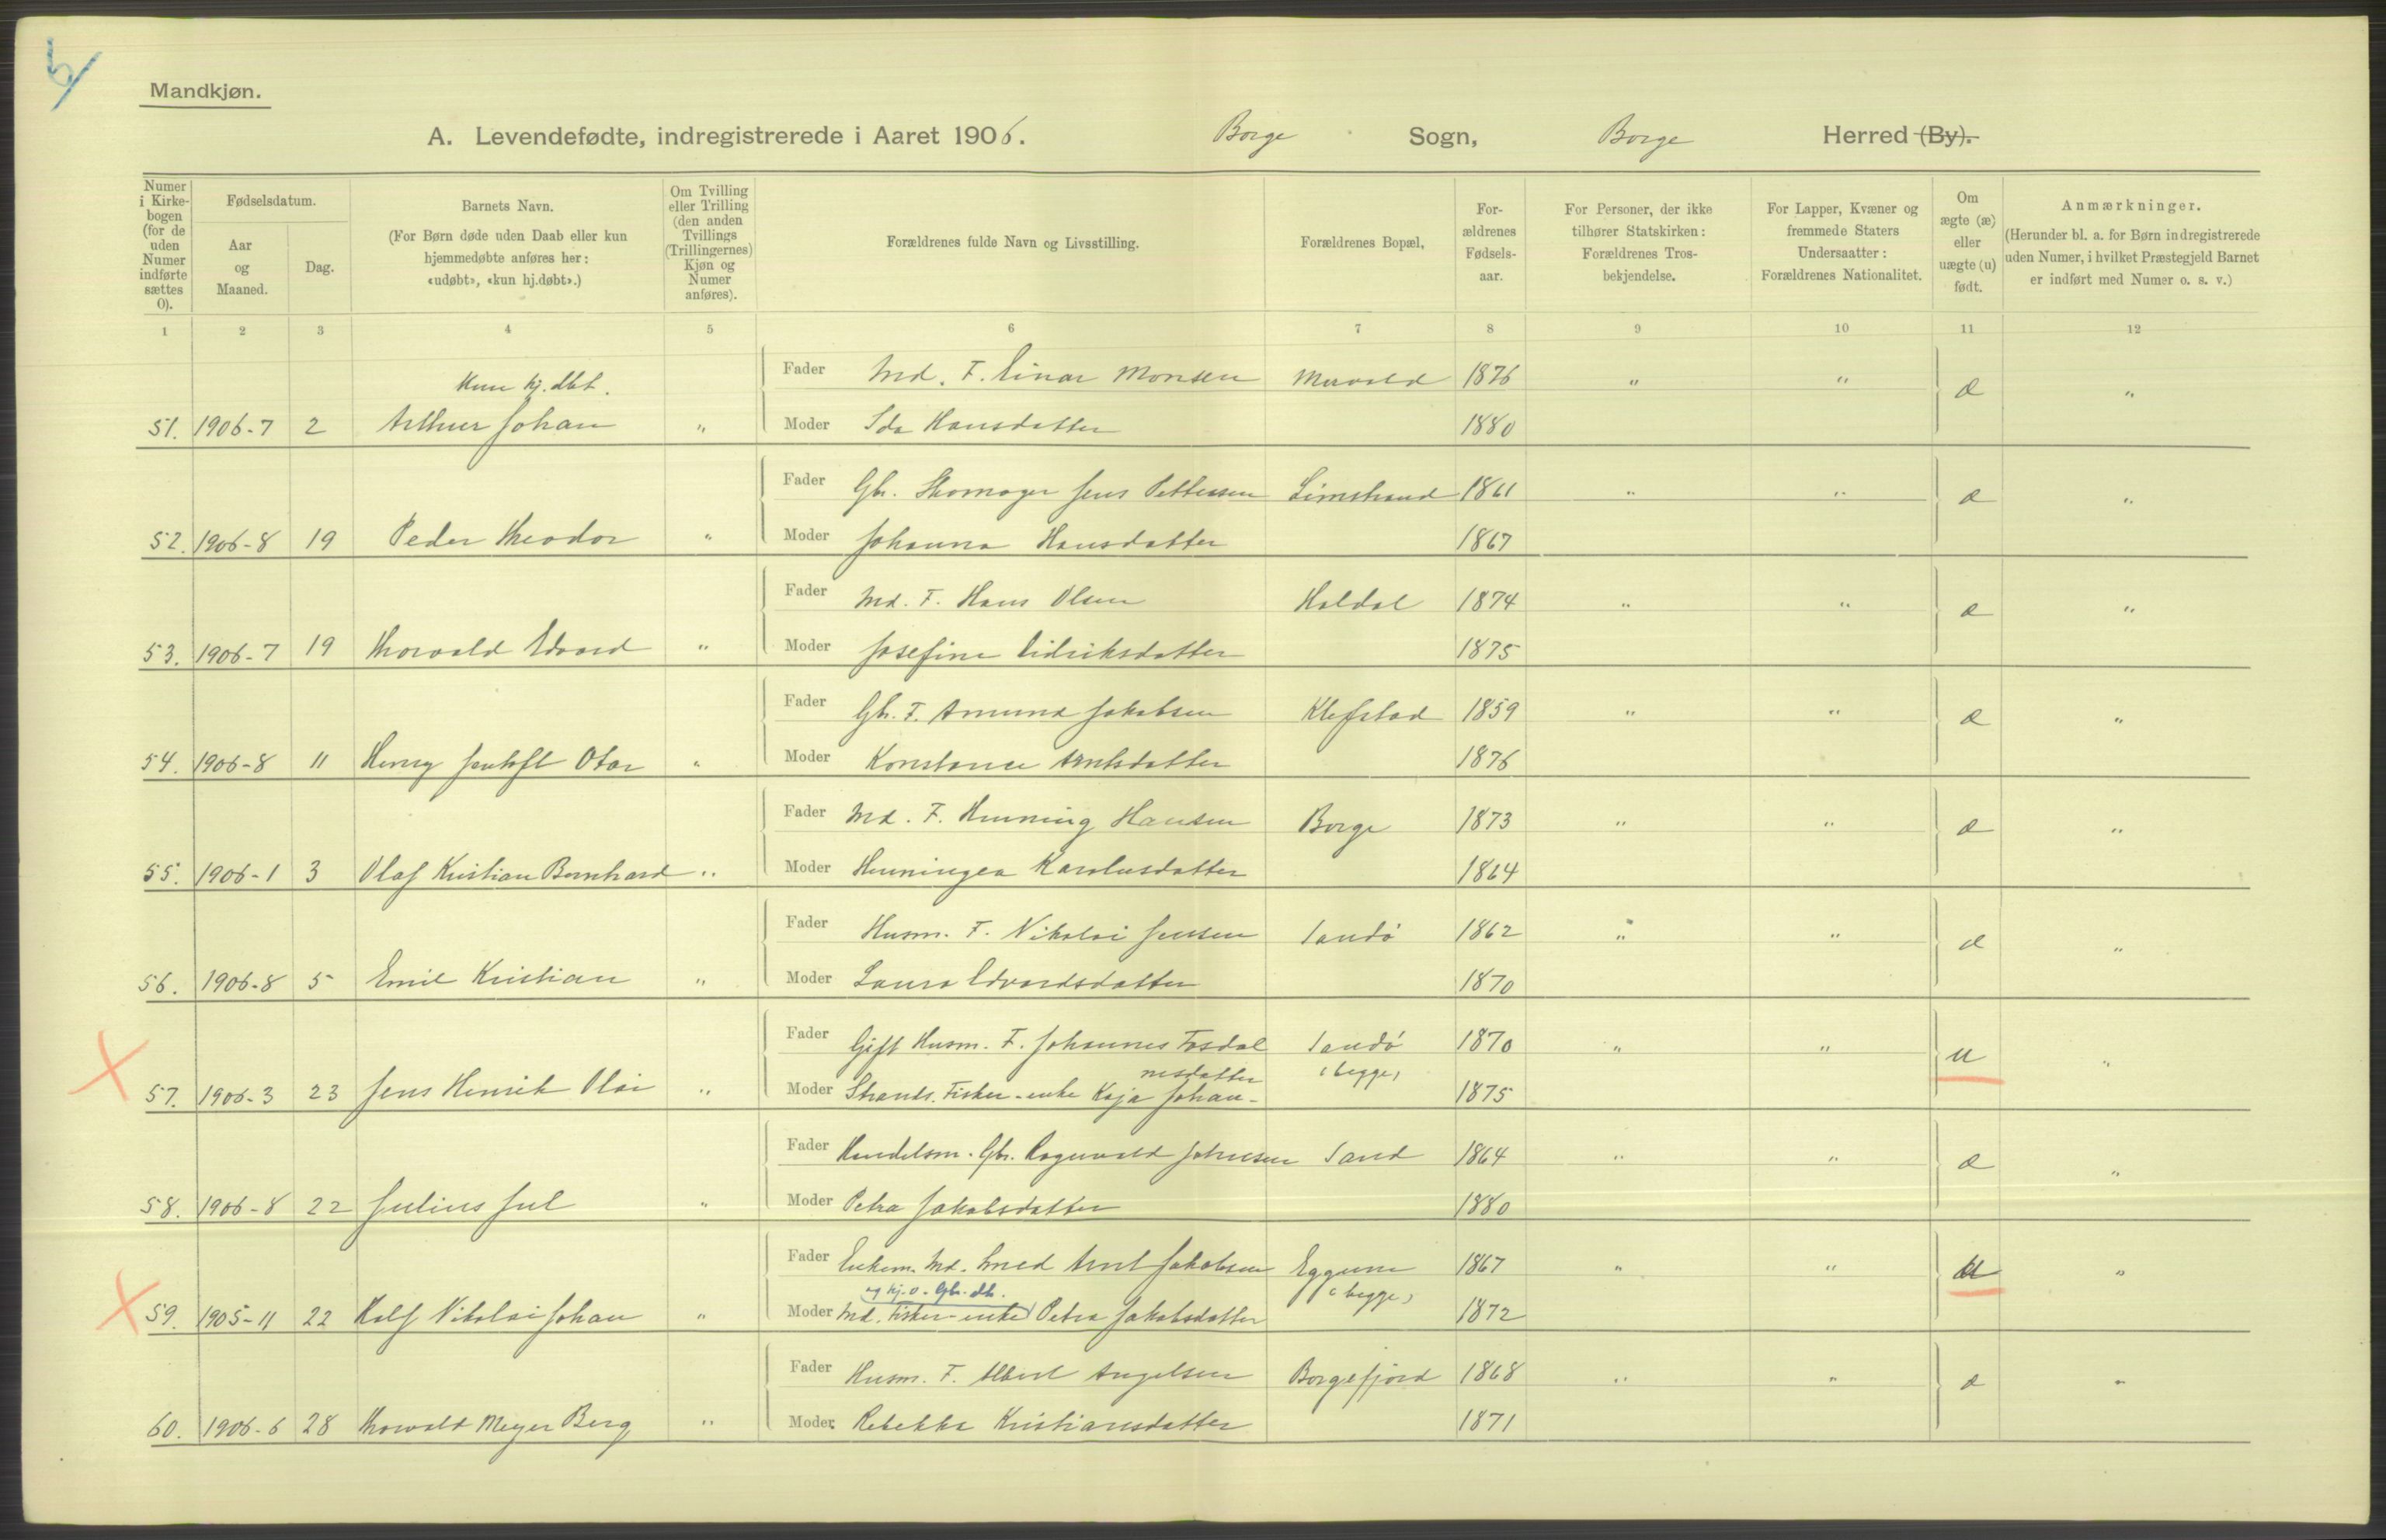 5/
Mandkjøn.
A. Levendefødte, indregistrerede i Aaret 1906. Borge Sogn, Borge Herred (By).
Numer i Kirkebogen (for de uden Numer indførte sættes 0).
Fødselsdatum.
Aar og Maaned.
Dag.
Barnets Navn.
(For Børn døde uden Daab eller kun hjemmedøbte anføres her: «udøbt», «kun hj.døbt».)
Om Tvilling eller Trilling (den anden Tvillings (Trillingernes) Kjøn og Numer anføres).
Forældrenes fulde Navn og Livsstilling.
Forældrenes Bopæl,
For-ældrenes Fødsels-aar.
For Personer, der ikke tilhører Statskirken: Forældrenes Tros-bekjendelse.
For Lapper, Kvæner og fremmede Staters Undersaatter: Forældrenes Nationalitet.
Om ægte (æ) eller uægte (u) født.
Anmærkninger.
(Herunder bl. a. for Børn indregistrerede uden Numer, i hvilket Præstegjeld Barnet er indført med Numer o. s. v.)
1 2 3 4 5 6 7 8 9 10 11 12
Kun hj. dbt.
Fader Md. F. Einar Monsen 1876 " " æ "
51. 1906-7 2 Arthur Johan " Moder Ida Hansdatter 1880
Fader Gbr. Skomager Jens Pettersen Limstrand 1861 " " æ "
52. 1906-8 19 Peder Theodor " Moder Johanna Hansdatter 1867
Fader Md. F. Hans Olsen Haldal 1874 " " æ "
53. 1906-7 19 Thorvald Edvard " Moder Josefine Didriksdatter 1875
Fader Gbr. F. Amund Jakobsen Klefstad 1859 " " æ "
54. 1906-8 11 Henry Otar " Moder Konstance Arntsdatter 1876
Fader Md. F. Henning Hansen Borge 1873 " " æ "
55. 1906-1 3 Olaf Kristian Bernhard " Moder Henningea Karolusdatter 1864
Fader Husm. F. Nikolai Jensen Sandö 1862 " " æ "
56. 1906-8 5 Emil Kristian " Moder Laura Edvardsdatter 1870
Fader Gift Husm. F. Johannes Fosdal Sandö 1870 " " u "
nesdatter (begge)
57. 1906-3 23 Jens Henrik Olai " Moder Strands. Fisker-enke Kaja Johan- 1875
Fader Handelsm. Gbr. Ragnvald Johnsen Sand 1864 " " æ "
58. 1906-8 22 Julius Jul " Moder Petra Jakobsdatter 1880
Fader Enkem. Md. Smed Arnt Jakobsen Eggum 1867 " " u "
og hj. v. Gbr. dtr. (begge)
59. 1905-11 22 Rolf Nikolai Johan " Moder Md. Fisker-enke Petra Jakobsdatter 1872
Fader Husm. F. Albert Angelsen Borgefjord 1868 " " æ "
60. 1906-6 28 Thorvald Meyer Berg " Moder Rebekka Kristiansdatter 1871